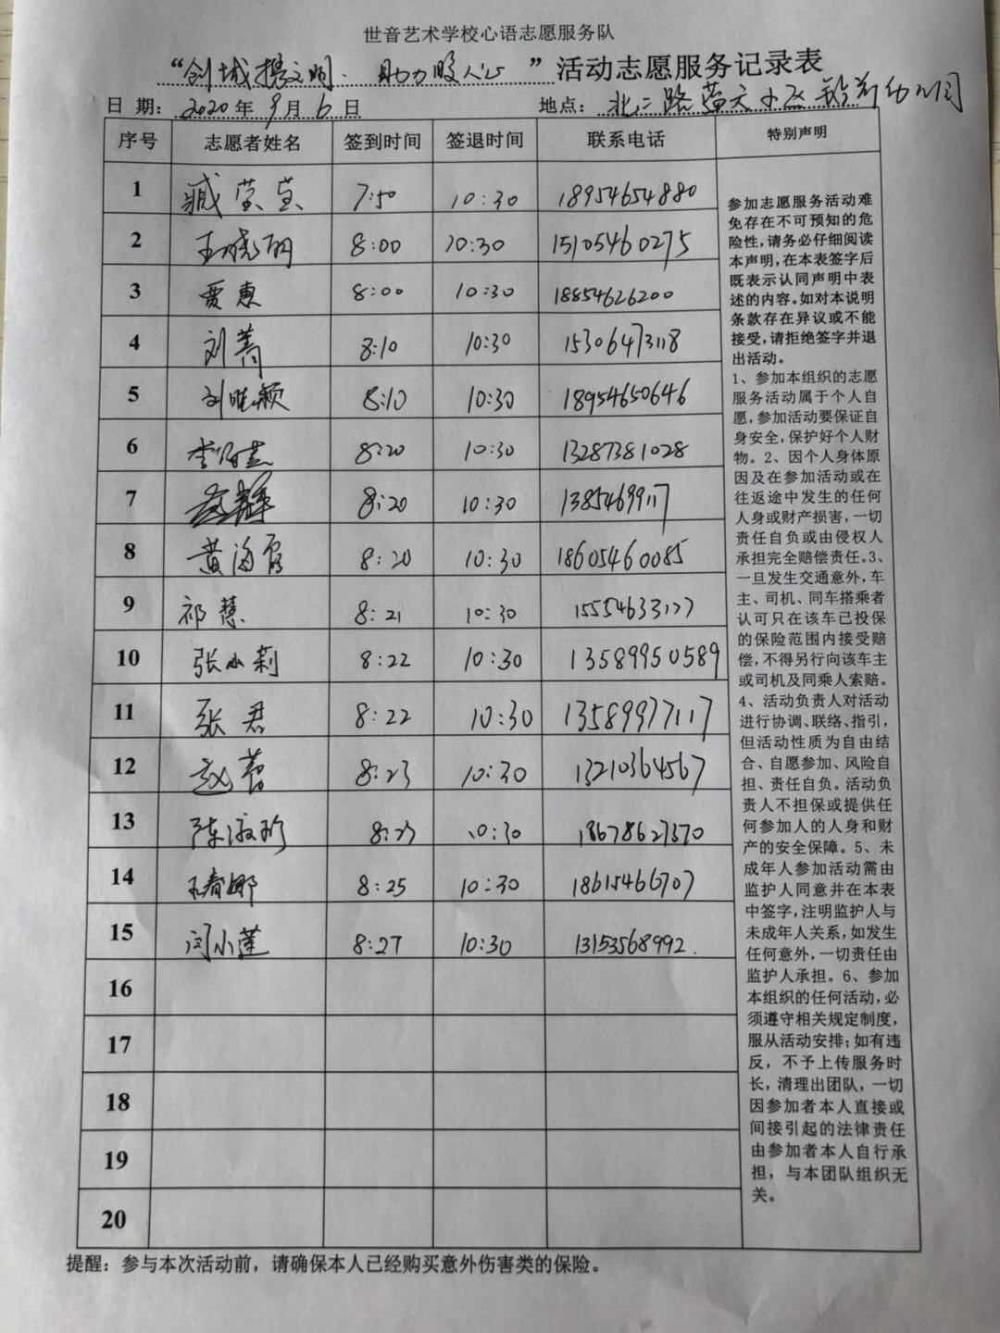 世音艺术学校心语志愿服务队
“创城携文明·助力暖人心”活动志愿服务记录表
日 期: 2020年9月6日 地点: 北二路蓝天小区
序号 志愿者姓名 签到时间 签退时间 联系电话 特别声明
1 臧莹莹 7:50 10:30 18954654880
2 王晓丽 8:00 10:30 15105460275
3 贾惠 8:00 10:30 18854626200
4 刘菁 8:10 10:30 15306473118
5 刘晓颖 8:10 10:30 18954650646
6 8:20 10:30 13287381028
7 8:20 10:30 1385469917
8 黄海霞 8:20 10:30 18605460085
9 祁慧 8:21 10:30 15554633177
10 张小莉 8:22 10:30 13589950589
11 张君 8:22 10:30 13589977117
12 赵茜 8:23 10:30 13210364567
13 陈淑珍 8:23 10:30 18678627370
14 王春娜 8:25 10:30 18615466707
15 闵小莲 8:27 10:30 13153568992.
16
17
18
19
20
参加志愿服务活动难
免存在不可预知的危
险性,请务必仔细阅读
本声明,在本表签字后
既表示认同声明中表
述的内容。如对本说明
条款存在异议或不能
接受,请拒绝签字并退
出活动。
1、参加本组织的志愿
服务活动属于个人自
愿,参加活动要保证自
身安全,保护好个人财
物。2、因个人身体原
因及在参加活动或在
往返途中发生的任何
人身或财产损害,一切
责任自负或由侵权人
承担完全赔偿责任。3、
一旦发生交通意外,车
主、司机、同车搭乘者
认可只在该车已投保
的保险范围内接受赔
偿,不得另行向该车主
或司机及同乘人索赔。
4、活动负责人对活动
进行协调、联络、指引,
但活动性质为自由结
合、自愿参加、风险自
担、责任自负。活动负
责人不担保或提供任
何参加人的人身和财
产的安全保障。5、未
成年人参加活动需由
监护人同意并在本表
中签字,注明监护人与
未成年人关系,如发生
任何意外,一切责任由
监护人承担。6、参加
本组织的任何活动,必
须遵守相关规定制度,
服从活动安排;如有违
反,不予上传服务时
长,清理出团队,一切
因参加者本人直接或
间接引起的法律责任
由参加者本人自行承
担,与本团队组织无
关。
提醒:参与本次活动前,请确保本人已经购买意外伤害类的保险。